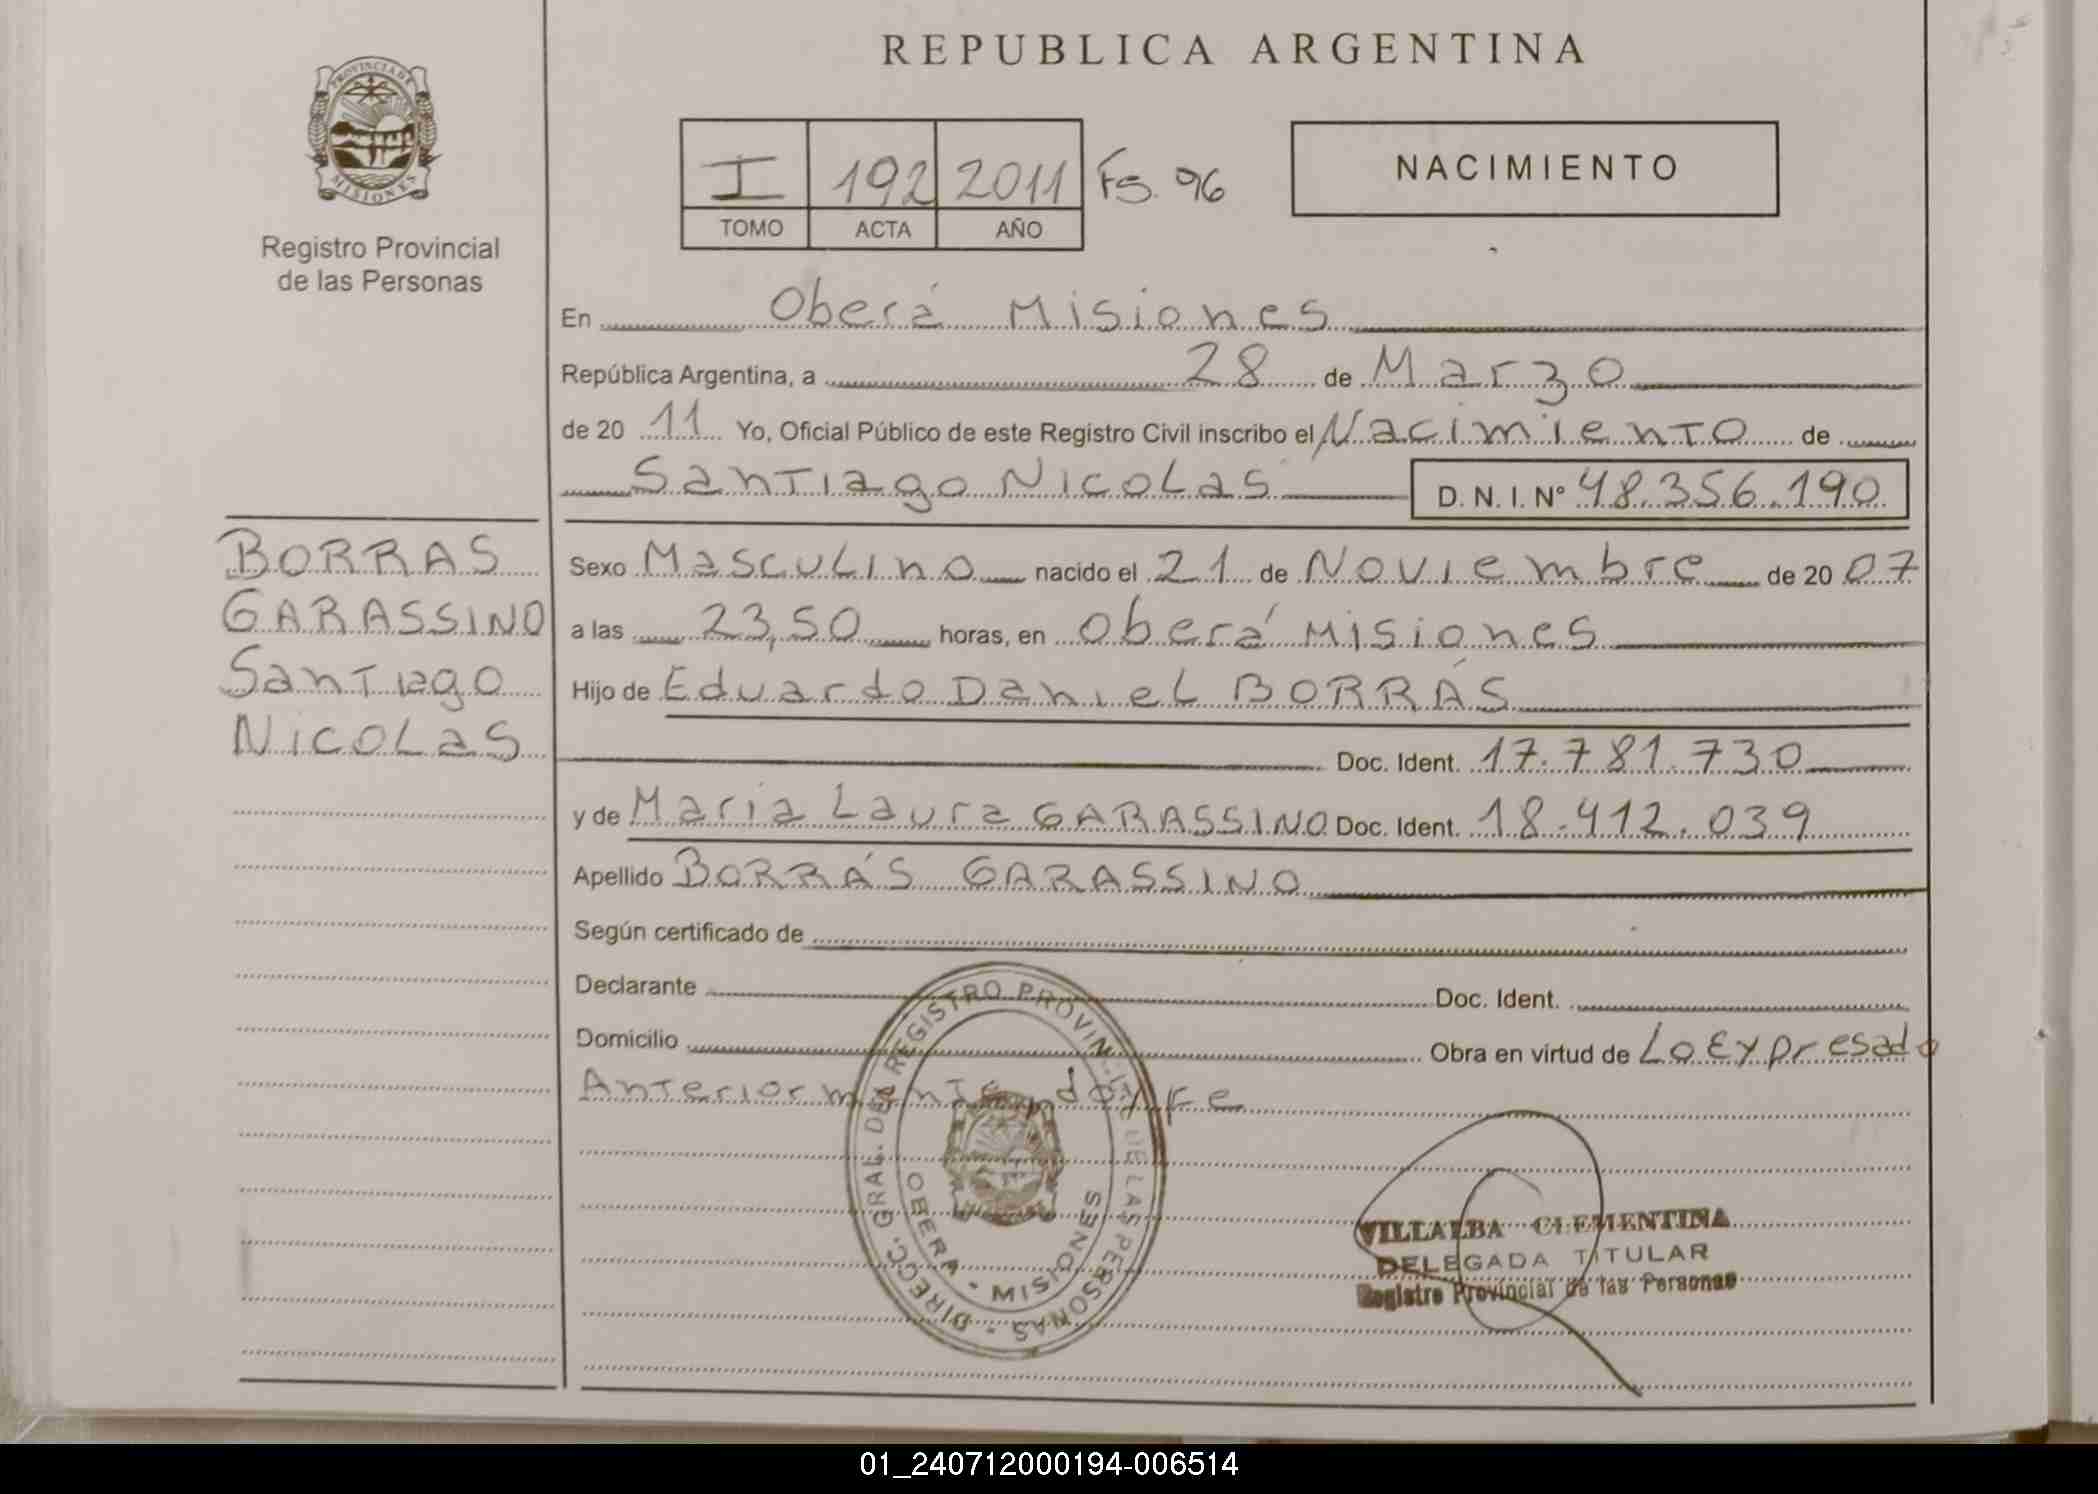 REPUBLICA ARGENTINA
PROVINCIA DE MISIONES
Registro Provincial
de las Personas
I 192 2011 Fs. 96
TOMO ACTA AÑO
NACIMIENTO
En Oberá Misiones
República Argentina, a 28 de Marzo
de 20 11 Yo, Oficial Público de este Registro Civil inscribo el Nacimiento de
Santiago Nicolas D. N. I. Nº 48.356.190
BORRAS
GARASSINO
Santiago
Nicolas
Sexo Masculino nacido el 21 de Noviembre de 20 07
a las 23,50 horas, en Oberá Misiones
Hijo de Eduardo Daniel BORRÁS
Doc. Ident. 17.781.730
y de Maria Laura GARASSINO Doc. Ident. 18.412.039
Apellido BORRÁS GARASSINO
Según certificado de
Declarante Doc. Ident.
Domicilio Obra en virtud de Lo Expresado
Anteriormente doy Fe
DIRECC. GRAL. DEL REGISTRO PROVINCIAL DE LAS PERSONAS -
OBERA - MISIONES
VILLALBA CLEMENTINA
DELEGADA TITULAR
Registro Provincial de las Personas
01_240712000194-006514